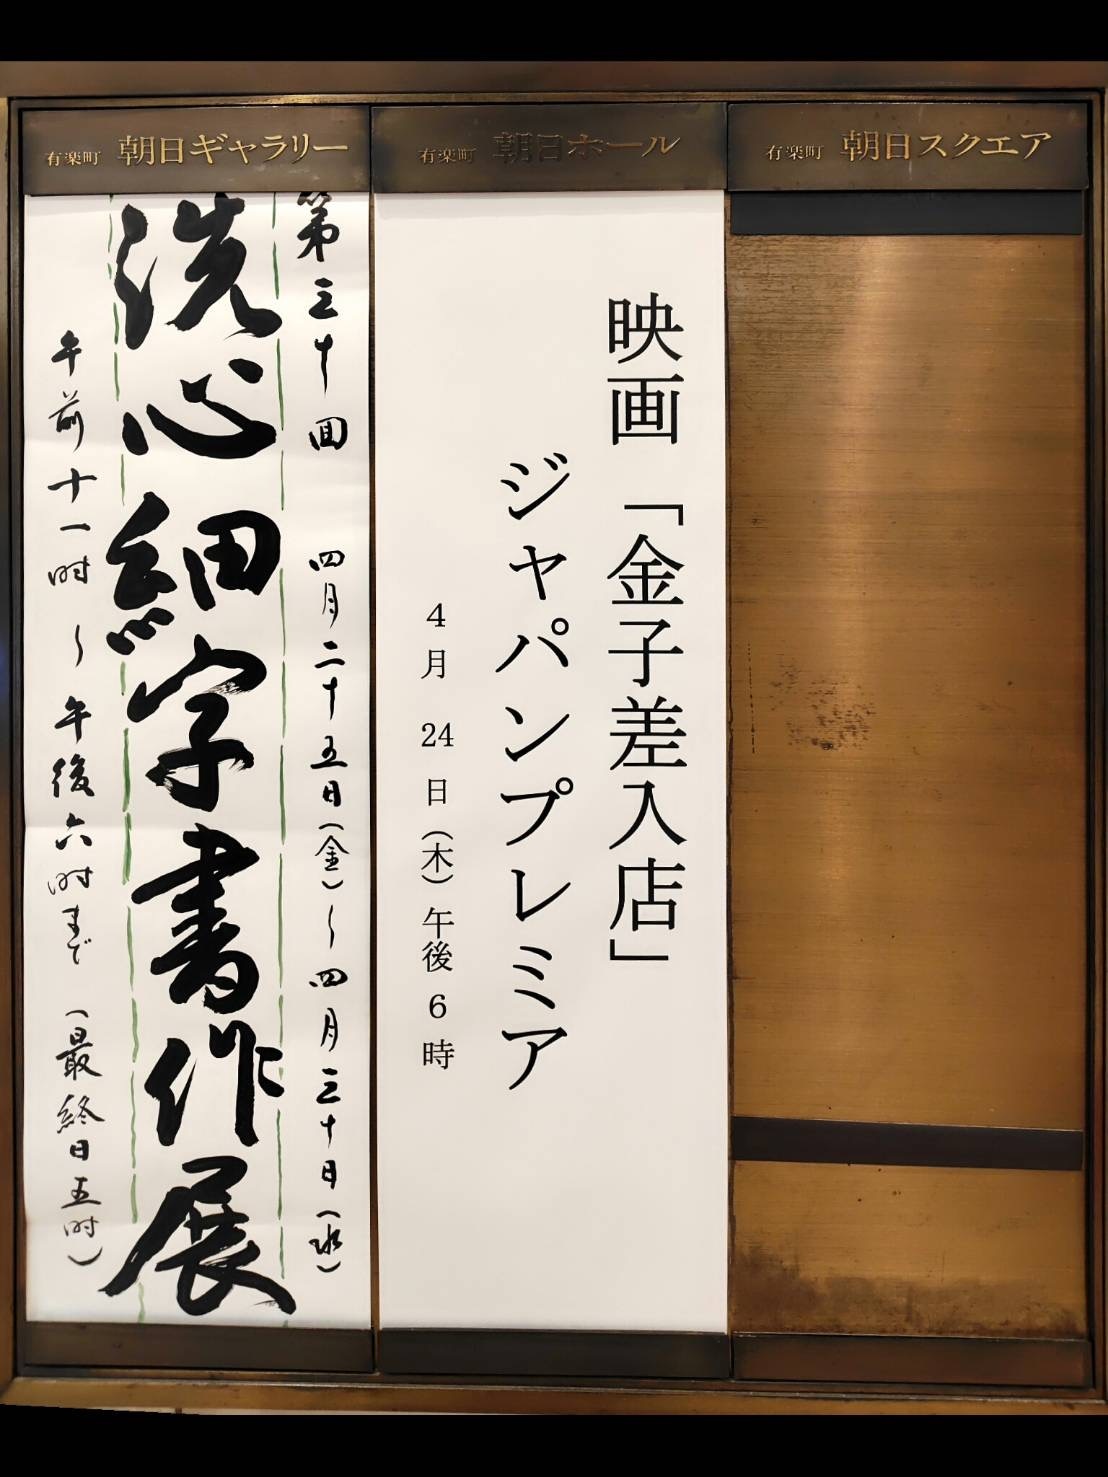 有楽町 朝日ギャラリー
第三十回 四月二十五日(金)〜四月三十日(水)
洗心細字書作展
午前十一時〜午後六時まで (最終日五時)
有楽町 朝日ホール
映画「金子差入店」
ジャパンプレミア
4月24日(木)午後6時
有楽町 朝日スクエア